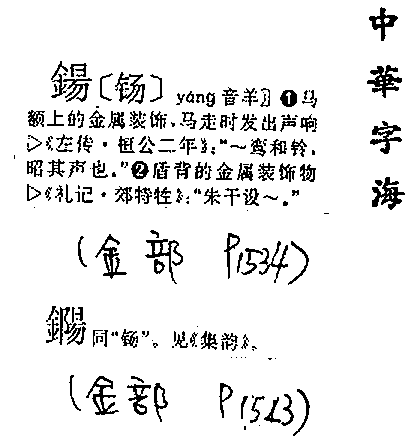 中華字海
鍚〔钖〕yáng 音羊〕❶马
额上的金属装饰,马走时发出声响
▷《左传·桓公二年》:“～鸾和铃,
昭其声也。”❷盾背的金属装饰物
▷《礼记·郊特牲》:“朱干设～。”
(金部 P1534)
鐊 同“钖”。见《集韵》。
(金部 P1543)